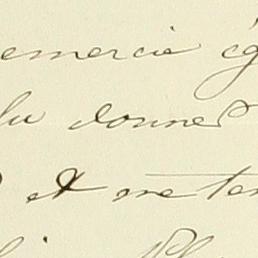 emercie ég
lu donner
et me ten